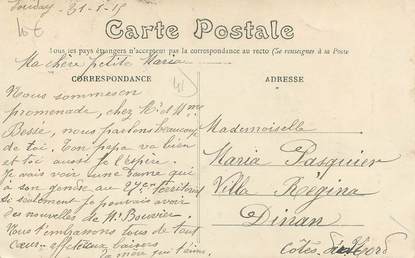 31-1-15
10€
Carte Postale
Tous les pays étrangers n'acceptent pas la correspondance au recto (Se renseigner à la Poste
Ma chère petite Maria
CORRESPONDANCE
Nous sommes en
promenade, chez Mr et Mme
Bessé, nous parlons beaucoup
de toi. Ton papa va bien
et toi aussi je l'espère.
Je vais voir une dame qui
à son gendre au 27er territorial
si seulement je pouvais avoir
des nouvelles de Mr Bouvier
Nous t'embrassons tous de tout
cœur affectueux baisers
ta mère qui t'aime
ADRESSE
Mademoiselle
Maria Pasquier
Villa Régina
Dinan
Côtes du Nord